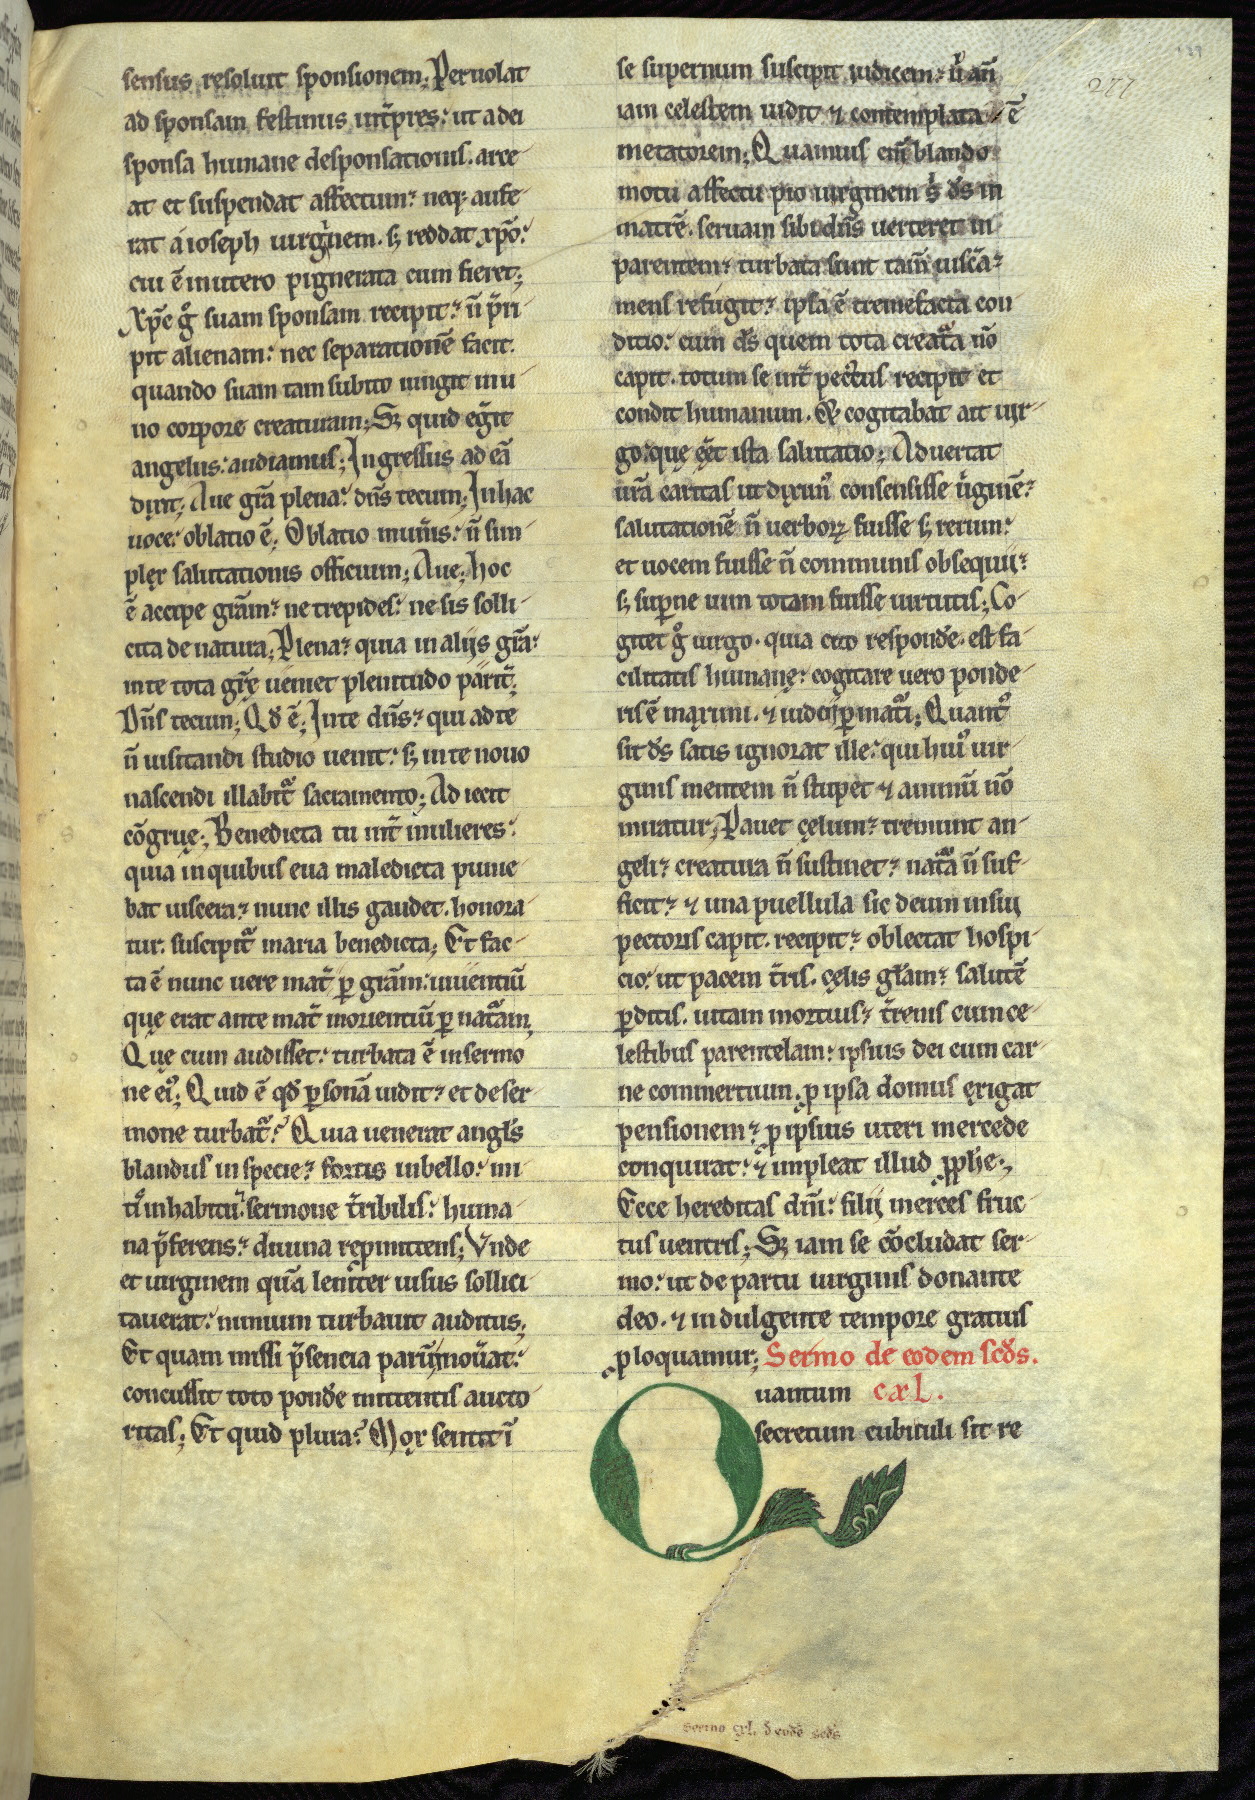 sensus resoluit sponsionem; Peruolat
ad sponsam festinus int̄pres: ut a dei
sponsa humane desponsationis. arce
at et suspendat affectum: neq; aufe
rat á ioseph uirginem. sꝫ reddat xp̄o:
cui ē inutero pignerata cum fieret;
Xp̄c gͦ suam sponsam recipit: n̄ p̄ri
pit alienam: nec separationē facit.
quando suam tam subito iungit in u
no corpore creaturam; Sꝫ quid eḡit
angelus: audiamus; Ingressus ad eā
dixit; Aue grā plena: dn̄s tecum; In hac
uoce: oblatio ē; Oblatio mun̄is: n̄ sim
plex salutationis officium; Aue; hoc
ē accipe grām: ne trepides: ne sis solli
cita de natura; Plena: quia in alijs grā:
in te tota grę ueniet plenitudo parit̄;
Dn̄s tecum; Qd̄ ē; In te dn̄s: qui ad te
n̄ uisitandi studio uenit: sꝫ in te nouo
nascendi illabit̄ sacramento; Adiecit
cōgruę; Benedicta tu int̄ mulieres:
quia in quibus eua maledicta punie
bat uiscera: nunc illis gaudet. honora
tur. suscipit̄ maria benedicta; Et fac
ta ē nunc uere mat̄ ꝑ grām: uiuentiū
quę erat ante mat̄ morientiū ꝑ natām;
Quę cum audisset: turbata ē in sermo
ne eiꝰ; Quid ē qd̄ ꝑsonā uidit: et de ser
mone turbat̄? Quia uenerat angl̄s
blandus in specie: fortis in bello: mi
tis in habitu: sermone t̄ribilis: huma
na p̄ferens: diuina repmittens; Vnde
et uirginem quā leniter uisus sollici
tauerat: nimium turbauit auditus;
Et quam missi p̄sencia parū mou̅at:
concussit toto pond̄e mittentis aucto
ritas; Et quid plura? Mox sentit ī
se supernum suscipit iudicem: u̇ an̄
iam celestem uidit & contemplata ē
metatorem; Quamuis eni̅ blando
motu affectu pio uirginem s̄ d̄s in
matrē. seruam sibi dn̄s uerteret in
parentem: turbata sunt tam̄ uiscā:
mens refugit: ipsa ē tremefacta con
ditio: cum d̄s quem tota creatā nō
capit. totum se int̄ pectꝰus recipit et
condit humanum. Et cogitabat ait uir
go: quę ēet ista salutatio; Aduertat
ur̄a caritas ut diximꝰ consensisse uiginē:
salutationē n̄ uerborꝝ fuisse sꝫ rerum:
et uocem fuisse n̄ communis obsequii:
sꝫ suꝑne uim totam fuisse uirtutis; Co
gitet gͦ uirgo. quia cito respond̄e. est fa
cilitatis humanę: cogitare uero ponde
ris ē maximi. & iudicij ꝑmati; Quantꝰ
sit d̄s satis ignorat ille: qui huiꝰ uir
ginis mentem n̄ stupet & animū nō
miratur; Pauet cęlum: tremunt an
geli: creatura n̄ sustinet: natā n̄ suf
ficit: & una puellula sic deum in sui
pectoris capit. recipit: oblectat hospi
cio: ut pacem t̄ris. cęlis glām: salutē
ꝑditis. uitam mortuis: t̄renis cum ce
lestibus parentelam: ipsius dei cum car
ne commertium. ꝓ ipsa domus exigat
pensionem: ꝓ ipsius uteri mercede
conquirat: & impleat illud ꝓphe;
Ecce hereditas dn̄i: filij merces fruc
tus uentris; Sꝫ iam se cōcludat ser
mo: ut de partu uirginis donante
deo. & indulgente tempore gratius
ꝓloquamur; Sermo de eodem scd̄s.
Quantum cxl.
secretum cubituli sit re
sermo cxl. d̄ eodē scd̄s
277